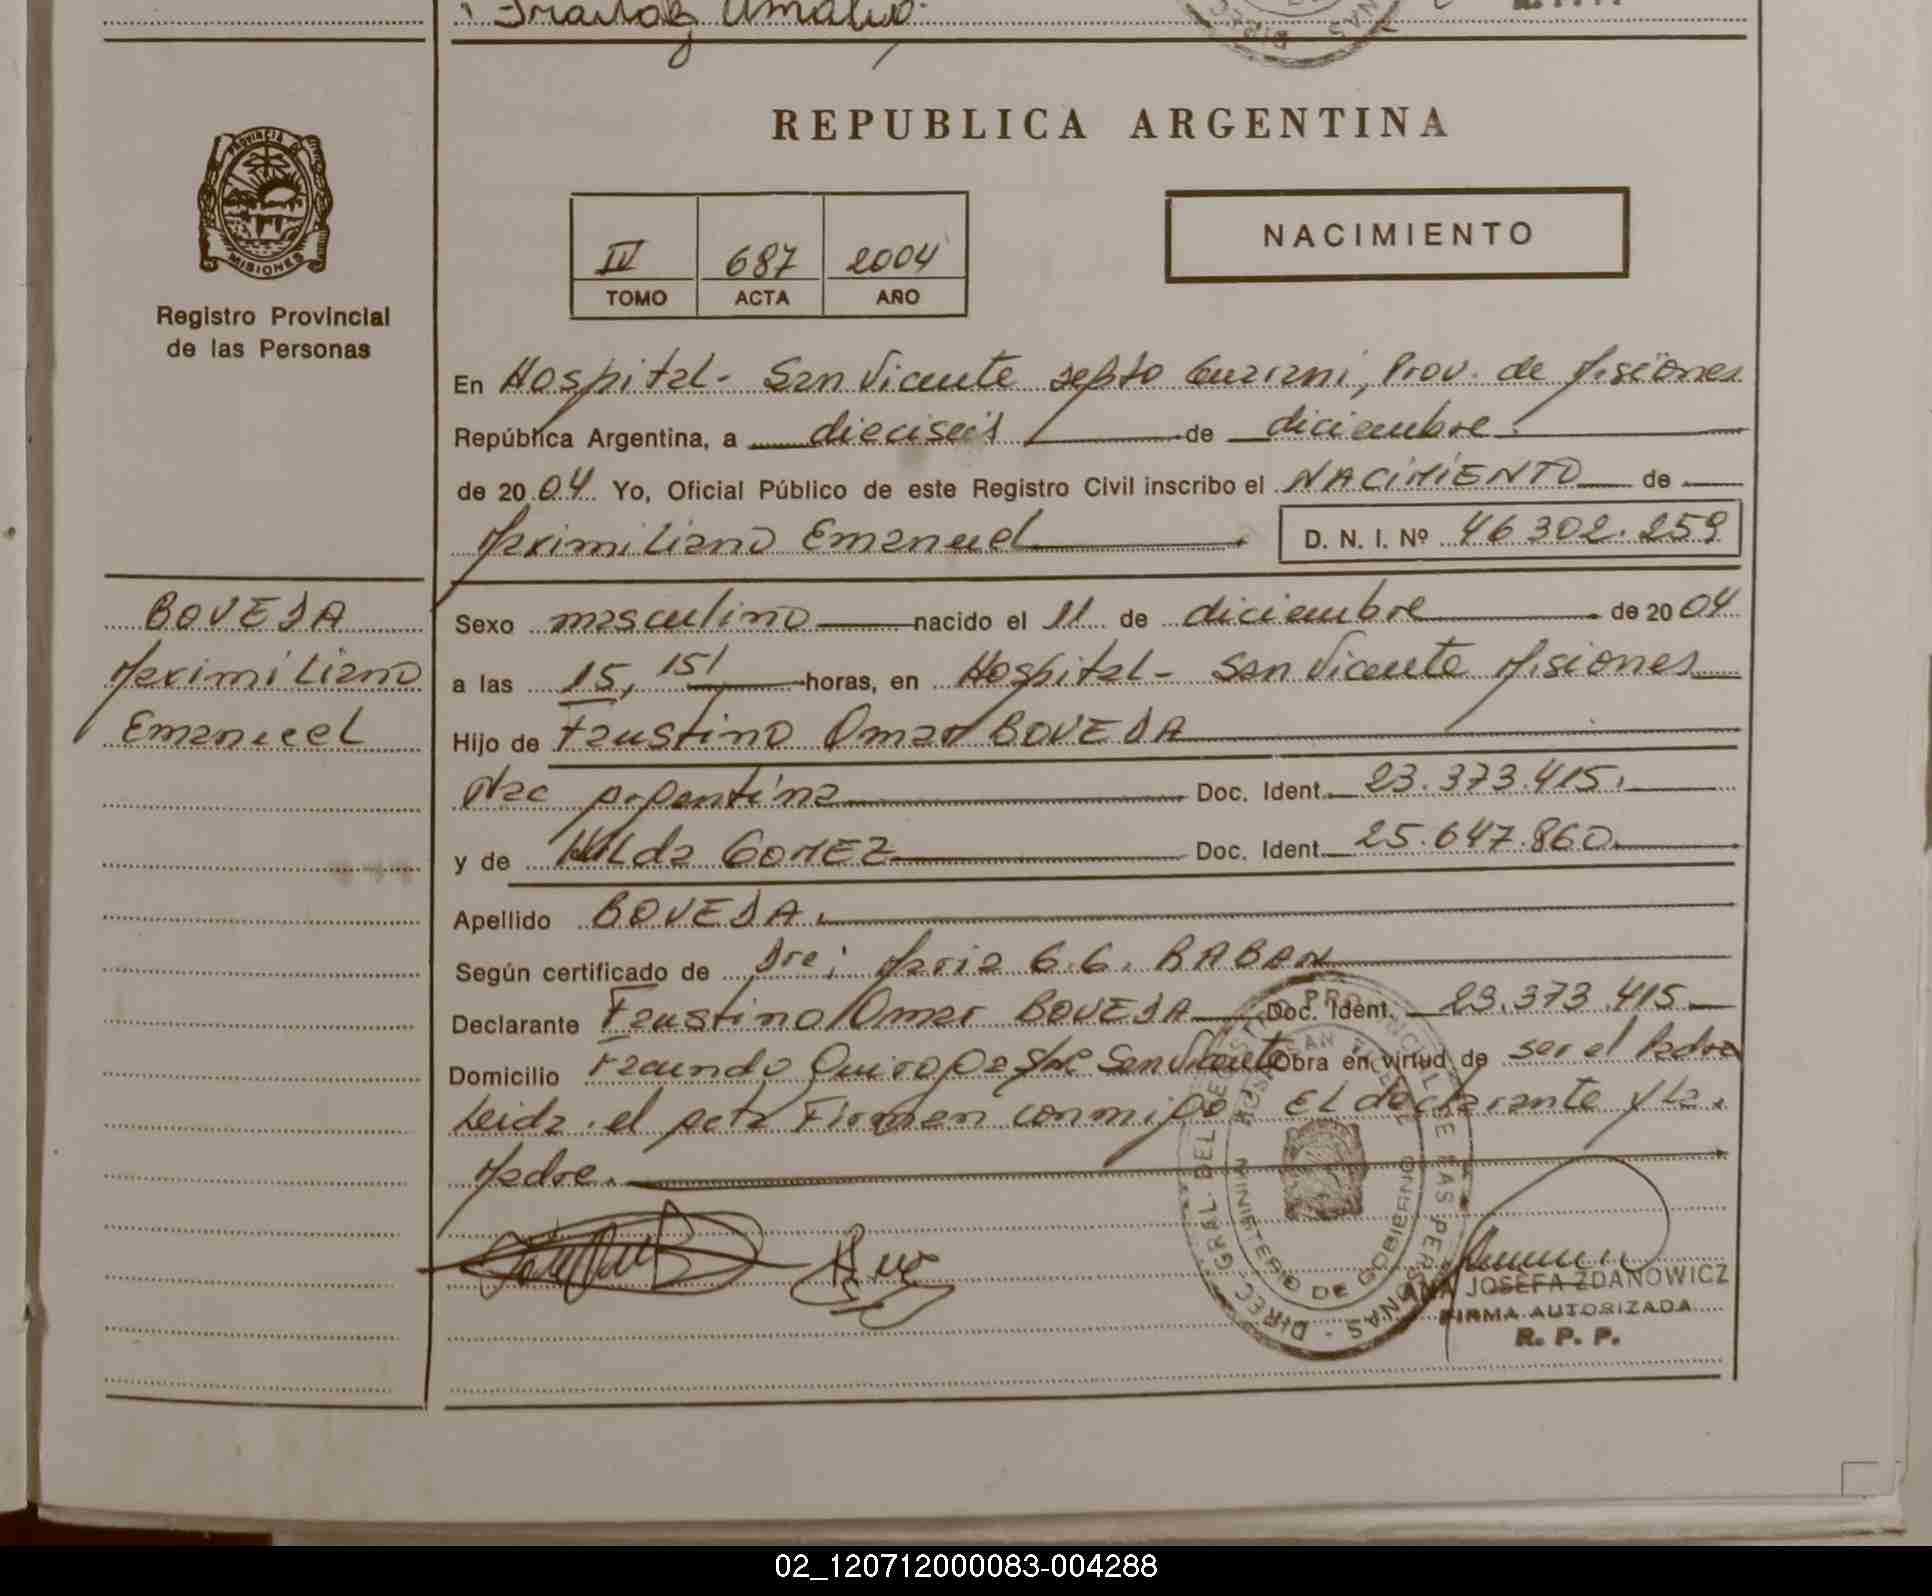 REPUBLICA ARGENTINA
PROVINCIA DE MISIONES
Registro Provincial
de las Personas
IV 687 2004
TOMO ACTA AÑO
NACIMIENTO
En Hospital - San Vicente Depto Guarani, Prov. de Misiones
República Argentina, a dieciseis de diciembre
de 2004 Yo, Oficial Público de este Registro Civil inscribo el NACIMIENTO de
Maximiliano Emanuel D. N. I. Nº 46302.259
BOVEDA
Maximiliano
Emanuel
Sexo masculino nacido el 11 de diciembre de 2004
a las 15,15 horas, en Hospital - San Vicente Misiones
Hijo de Faustino Omar BOVEDA
Nac Argentina Doc. Ident. 23.373.415.
y de Hilda GOMEZ Doc. Ident. 25.647.860
Apellido BOVEDA
Según certificado de Dra: Maria G.G. RABAN
Declarante Faustino Omar BOVEDA Doc. Ident. 23.373.415
Domicilio Facundo Quiroga San Vicente Obra en virtud de ser el Padre
Leida el acta Firman conmigo El declarante y La
Madre.
DIREC. GRAL. DEL REGISTRO PROVINCIAL DE LAS PERSONAS
MINISTERIO DE GOBIERNO
ANA JOSEFA ZDANOWICZ
FIRMA AUTORIZADA
R. P. P.
02_120712000083-004288